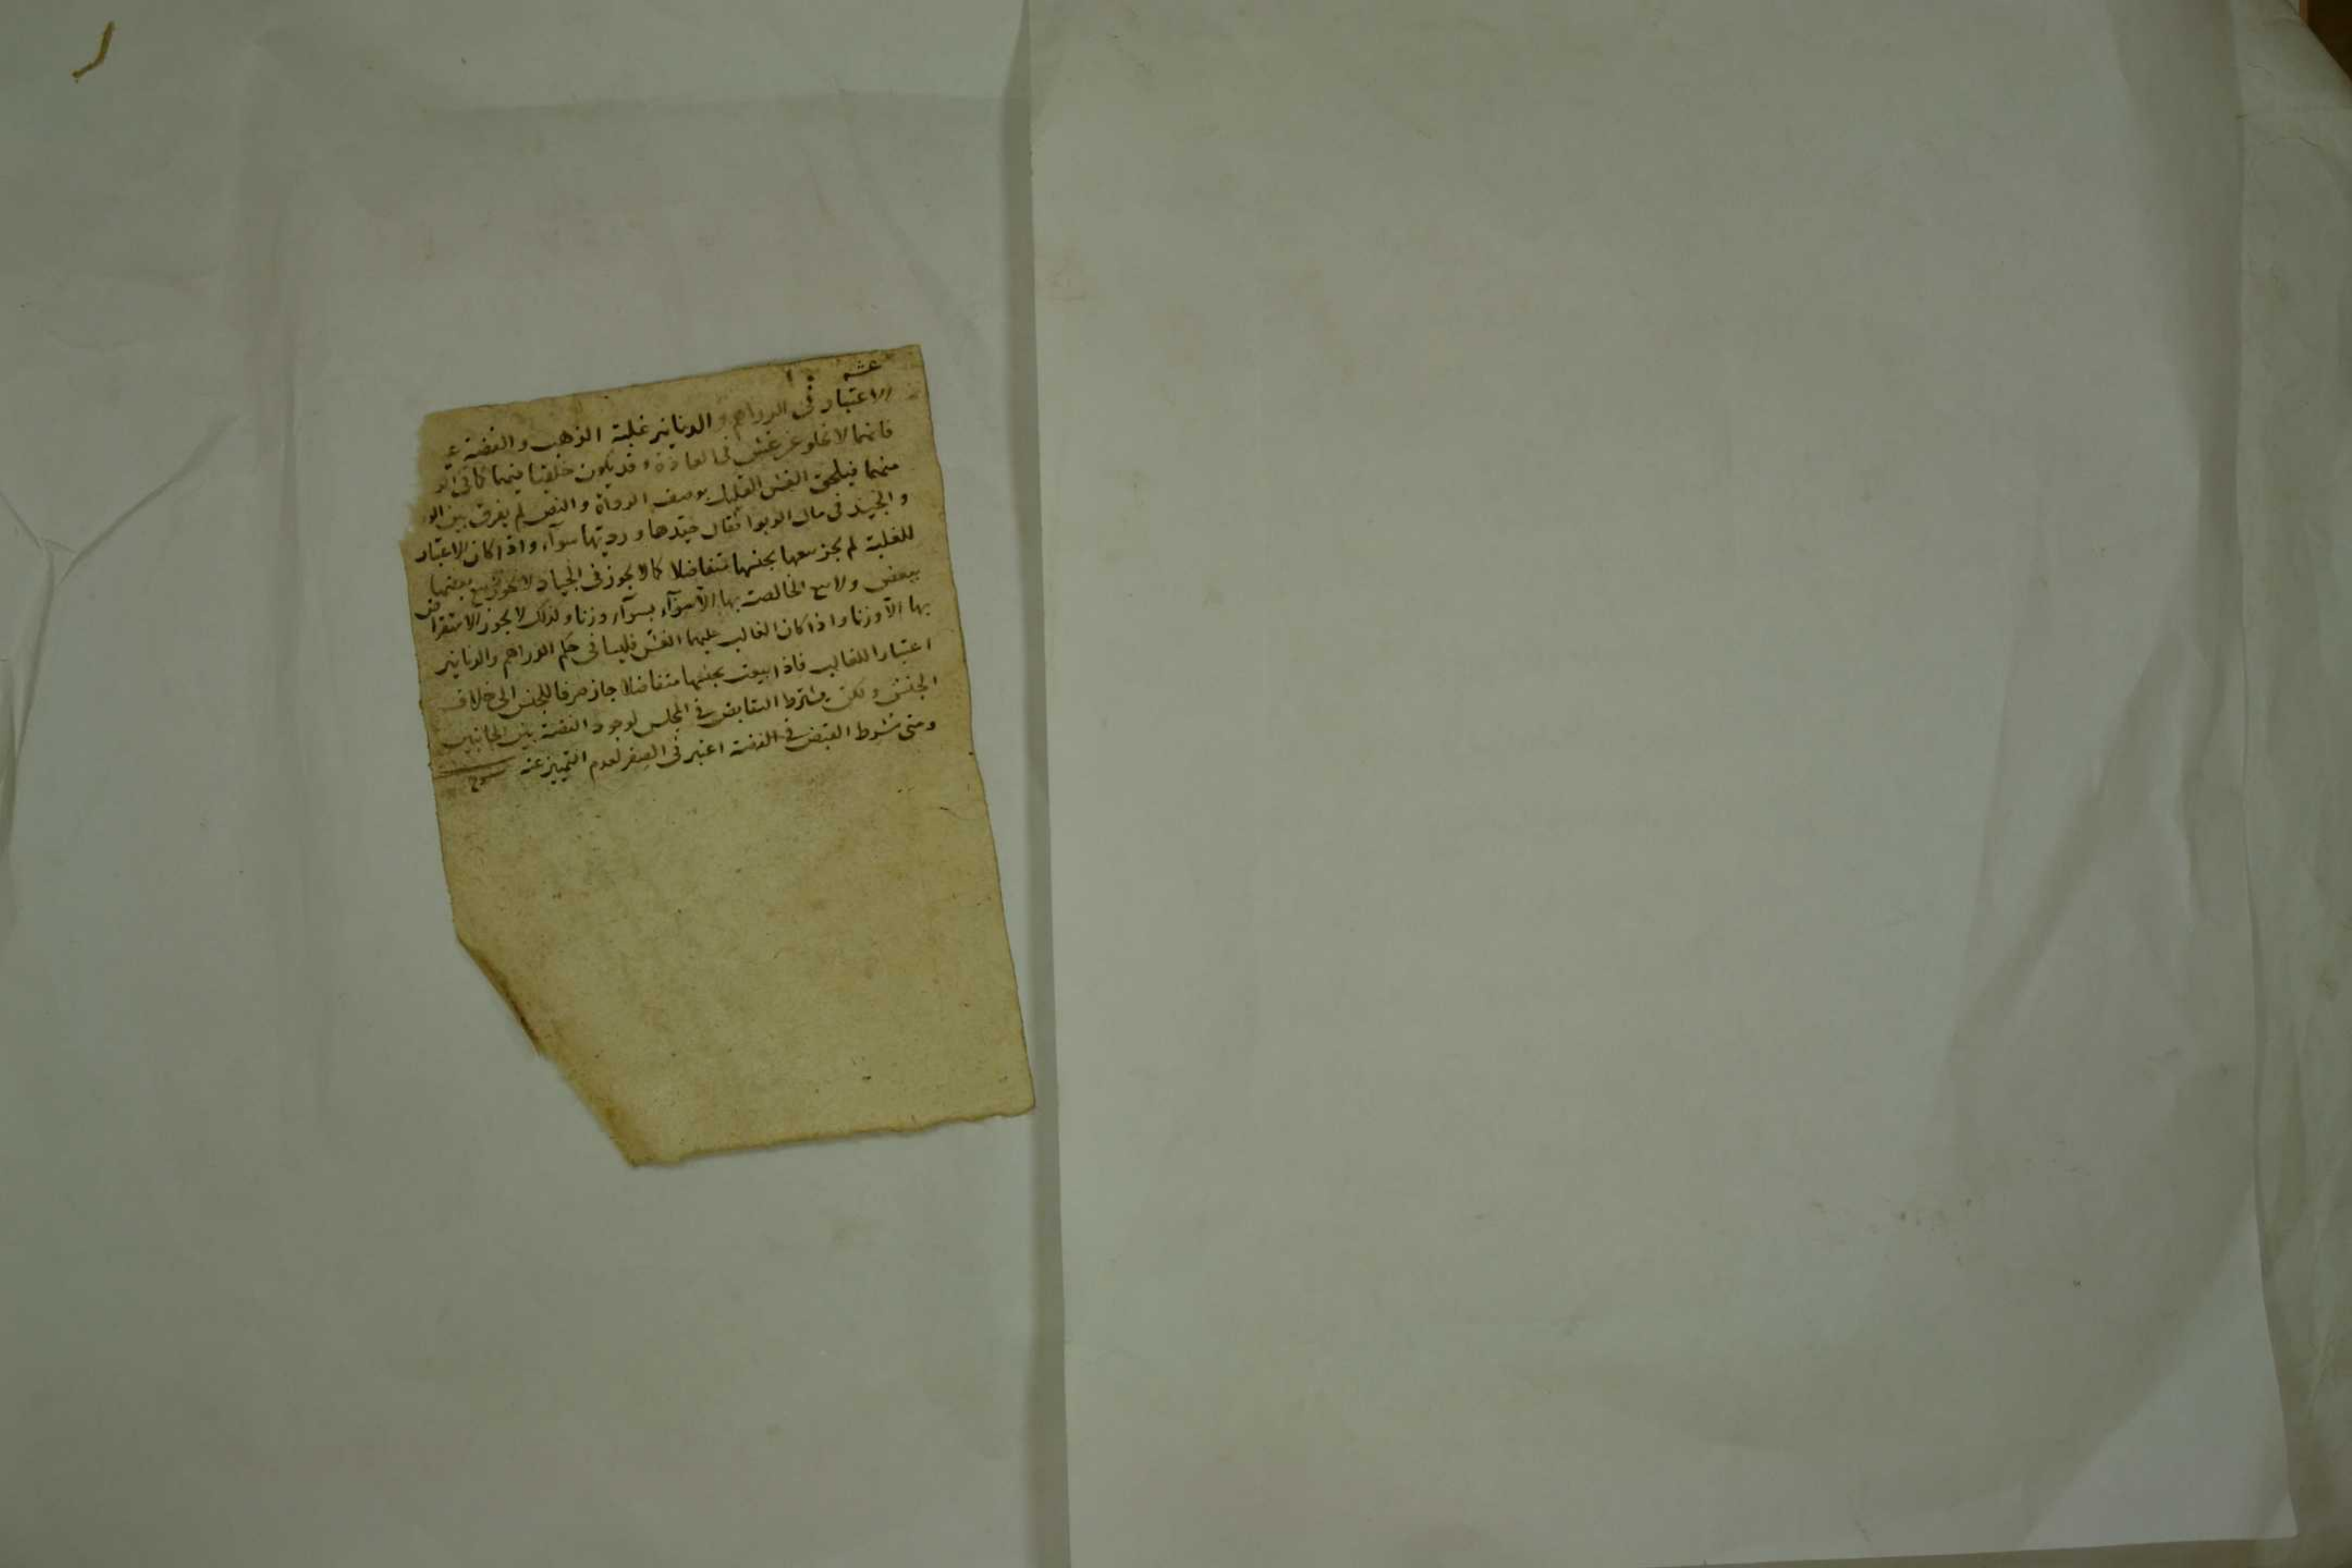 الاعتبار فى الدراهم و الدنانير غلبة الذهب و الفضة
فانهما لا تخلو عن غش فى العادة و قد يكون خلقيا فيهما كما فى
منهما فيلحق الغش القليل بوصف الرداة و النص لم يفرق بين
و الجيد فى مال الربوا فقال جيدها و رديها سوآء و اذا كان الاعتبار
للغلبة لم يجز بيعها بجنسها متفاضلا كما لا يجوز فى الجياد لا يجوز بيع بعضها
ببعض و لا بيع الخالصة بها الا سوآء بسوآء وزنا و لذلك لا يجوز الاستقراض
بها الا وزنا و اذا كان الغالب عليهما الغش فليسا فى حكم الدراهم و الدنانير
اعتبارا للغالب فاذا بيعت بجنسها متفاضلا جاز صرفا للجنس الى خلاف
الجنس و لكن يشترط التقابض فى المجلس لوجود الفضة بين الجانبين
و متى شرط القبض فى الفضة اعتبر فى الصفر لعدم التمييز عنه